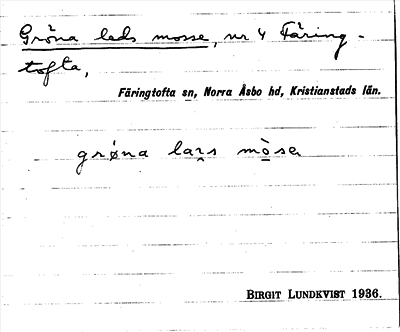 Gröna leds mosse, nr 4 Färing-
tofta,
Färingtofta sn, Norra Åsbo hd, Kristianstads län.
grøna las mòsa
BIRGIT LUNDKVIST 1936.